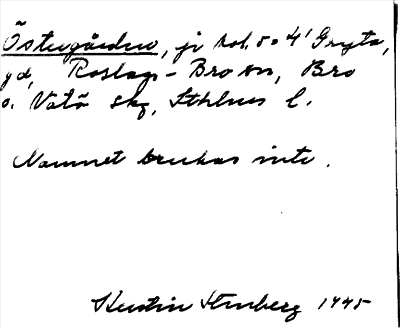 Östergården, jr kol. 5o4¹ Gryta,
gd, Roslags-Bro sn, Bro
o. Vätö skg, Sthlms l.
Namnet brukas inte.
Kerstin Stenberg 1945